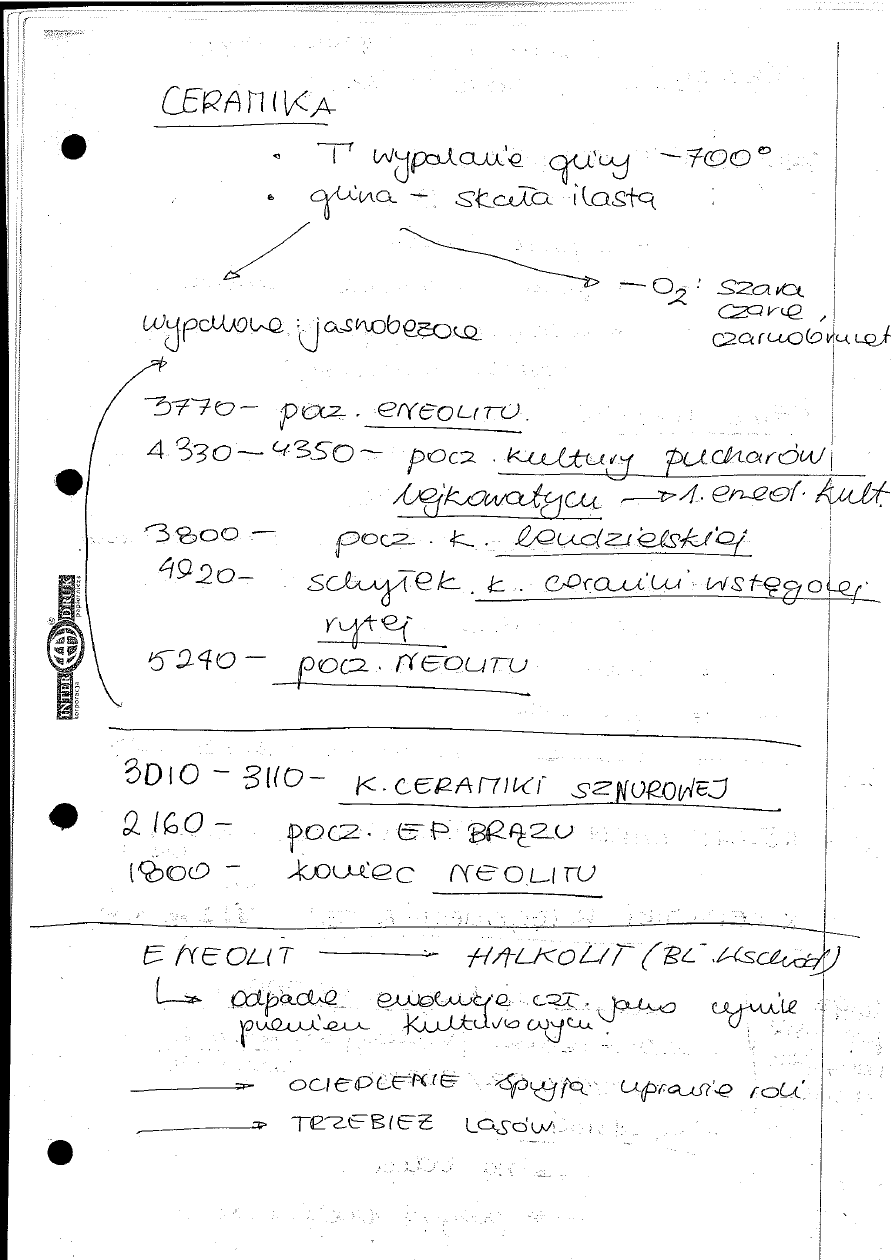 CERAMIKA
• T° wypalanie gliny ~700°
• glina - skała ilasta
wypalone: jasnobeżowe
-O2: szara
czarne,
czarnobrunet
3770- pocz. ENEOLITU.
4330-4350- pocz. kultury pucharów
lejkowatych → 1. eneol. kult.
3800- pocz. k. lendzielskiej
4920- schyłek k. ceramiki wstęgowej
rytej
5240- pocz. NEOLITU
INTERDRUK
korporacja papiernicza
3010-3110- K. CERAMIKI SZNUROWEJ
2160- pocz. EP. BRĄZU
1800- koniec NEOLITU
ENEOLIT → HALKOLIT (BL. Wschód)
↳ odpada ewolucja czł. jako czynnik
przemian kulturowych.
→ OCIEPLENIE sprzyja uprawie roli
→ TRZEBIEŻ LASÓW